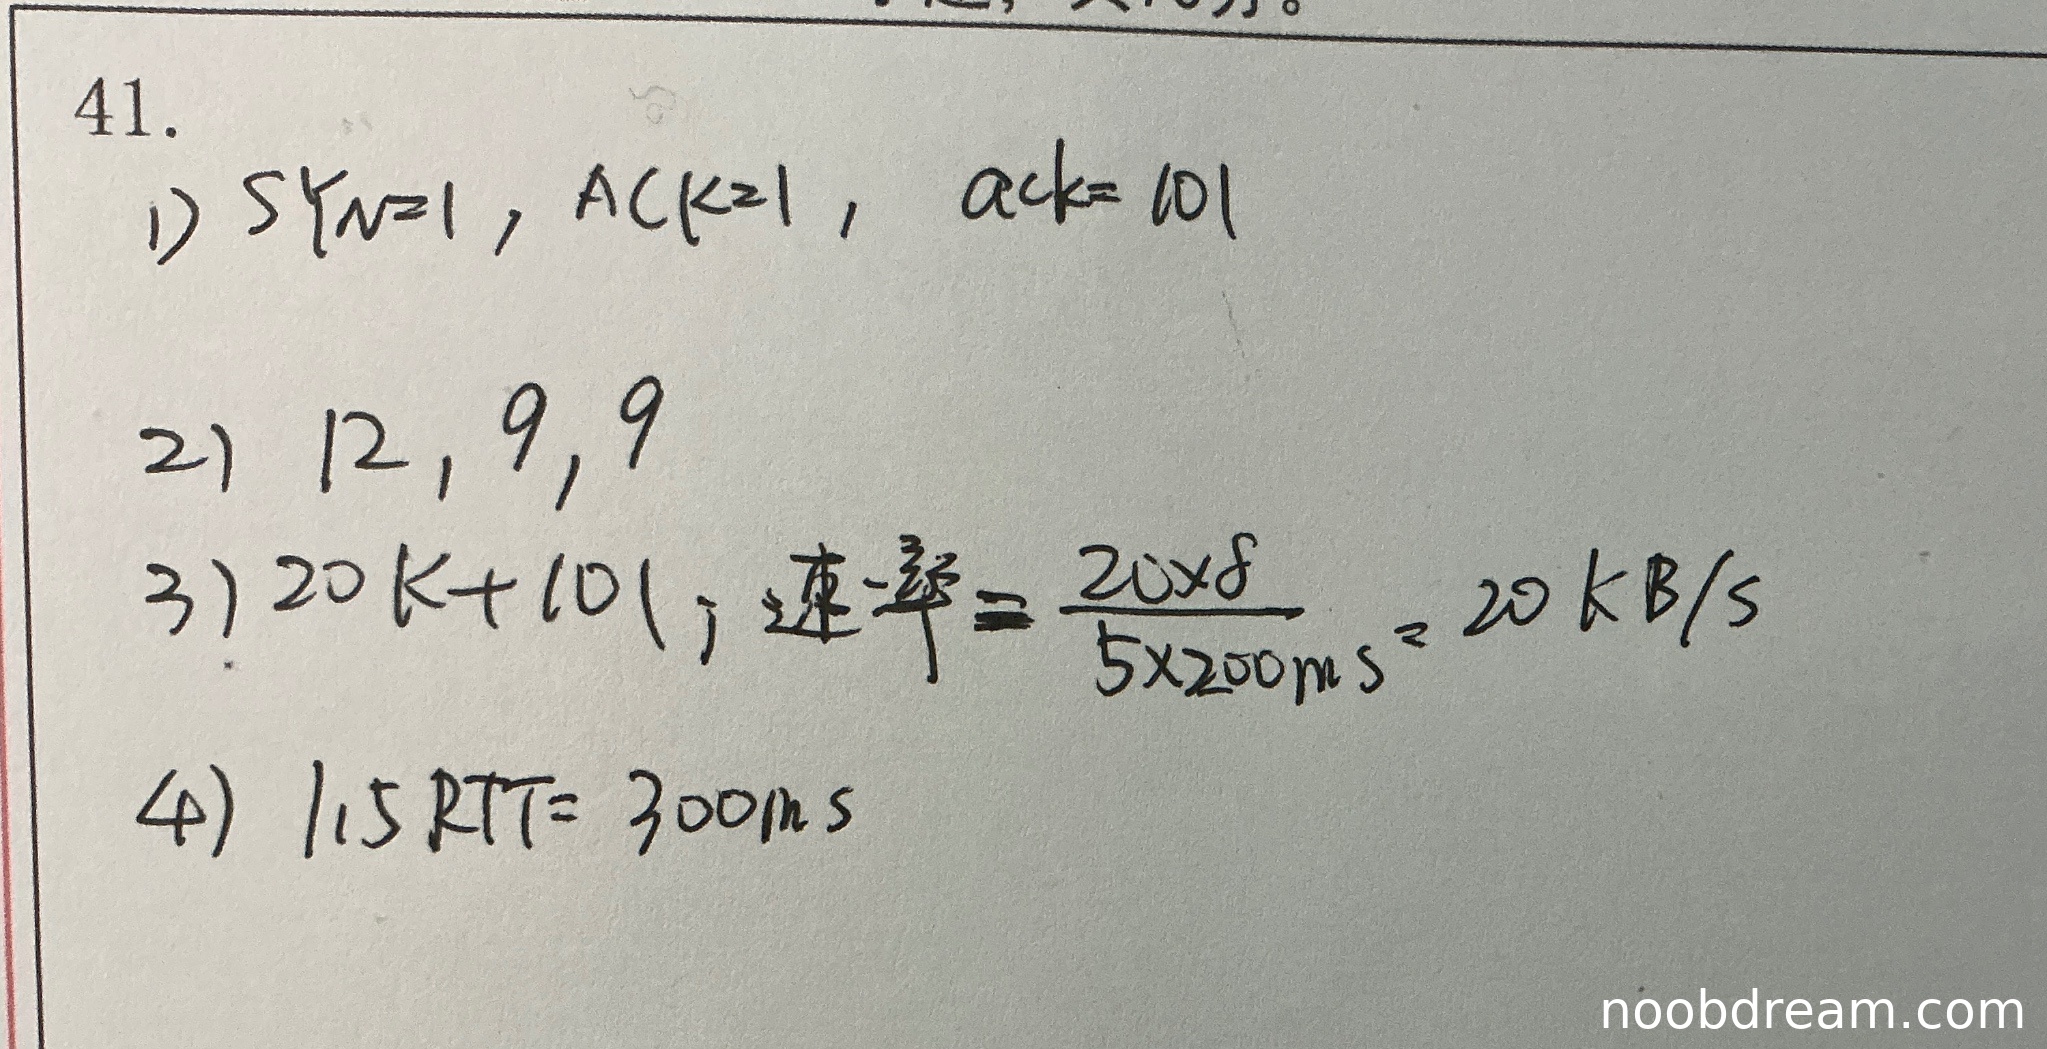 41.
1) SYN=1, ACK=1, ack=101
2) 12, 9, 9
3) 20K+101; 速率 = 20×8 / 5×200ms = 20KB/s
4) 1.5RTT= 300ms
noobdream.com